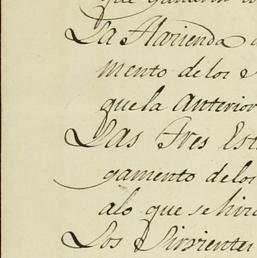 que ganaron
La Hacienda
mento de los
que la Anterior
Las Tres Est
gamento de los
alo que se hizo
Los Sirvientes